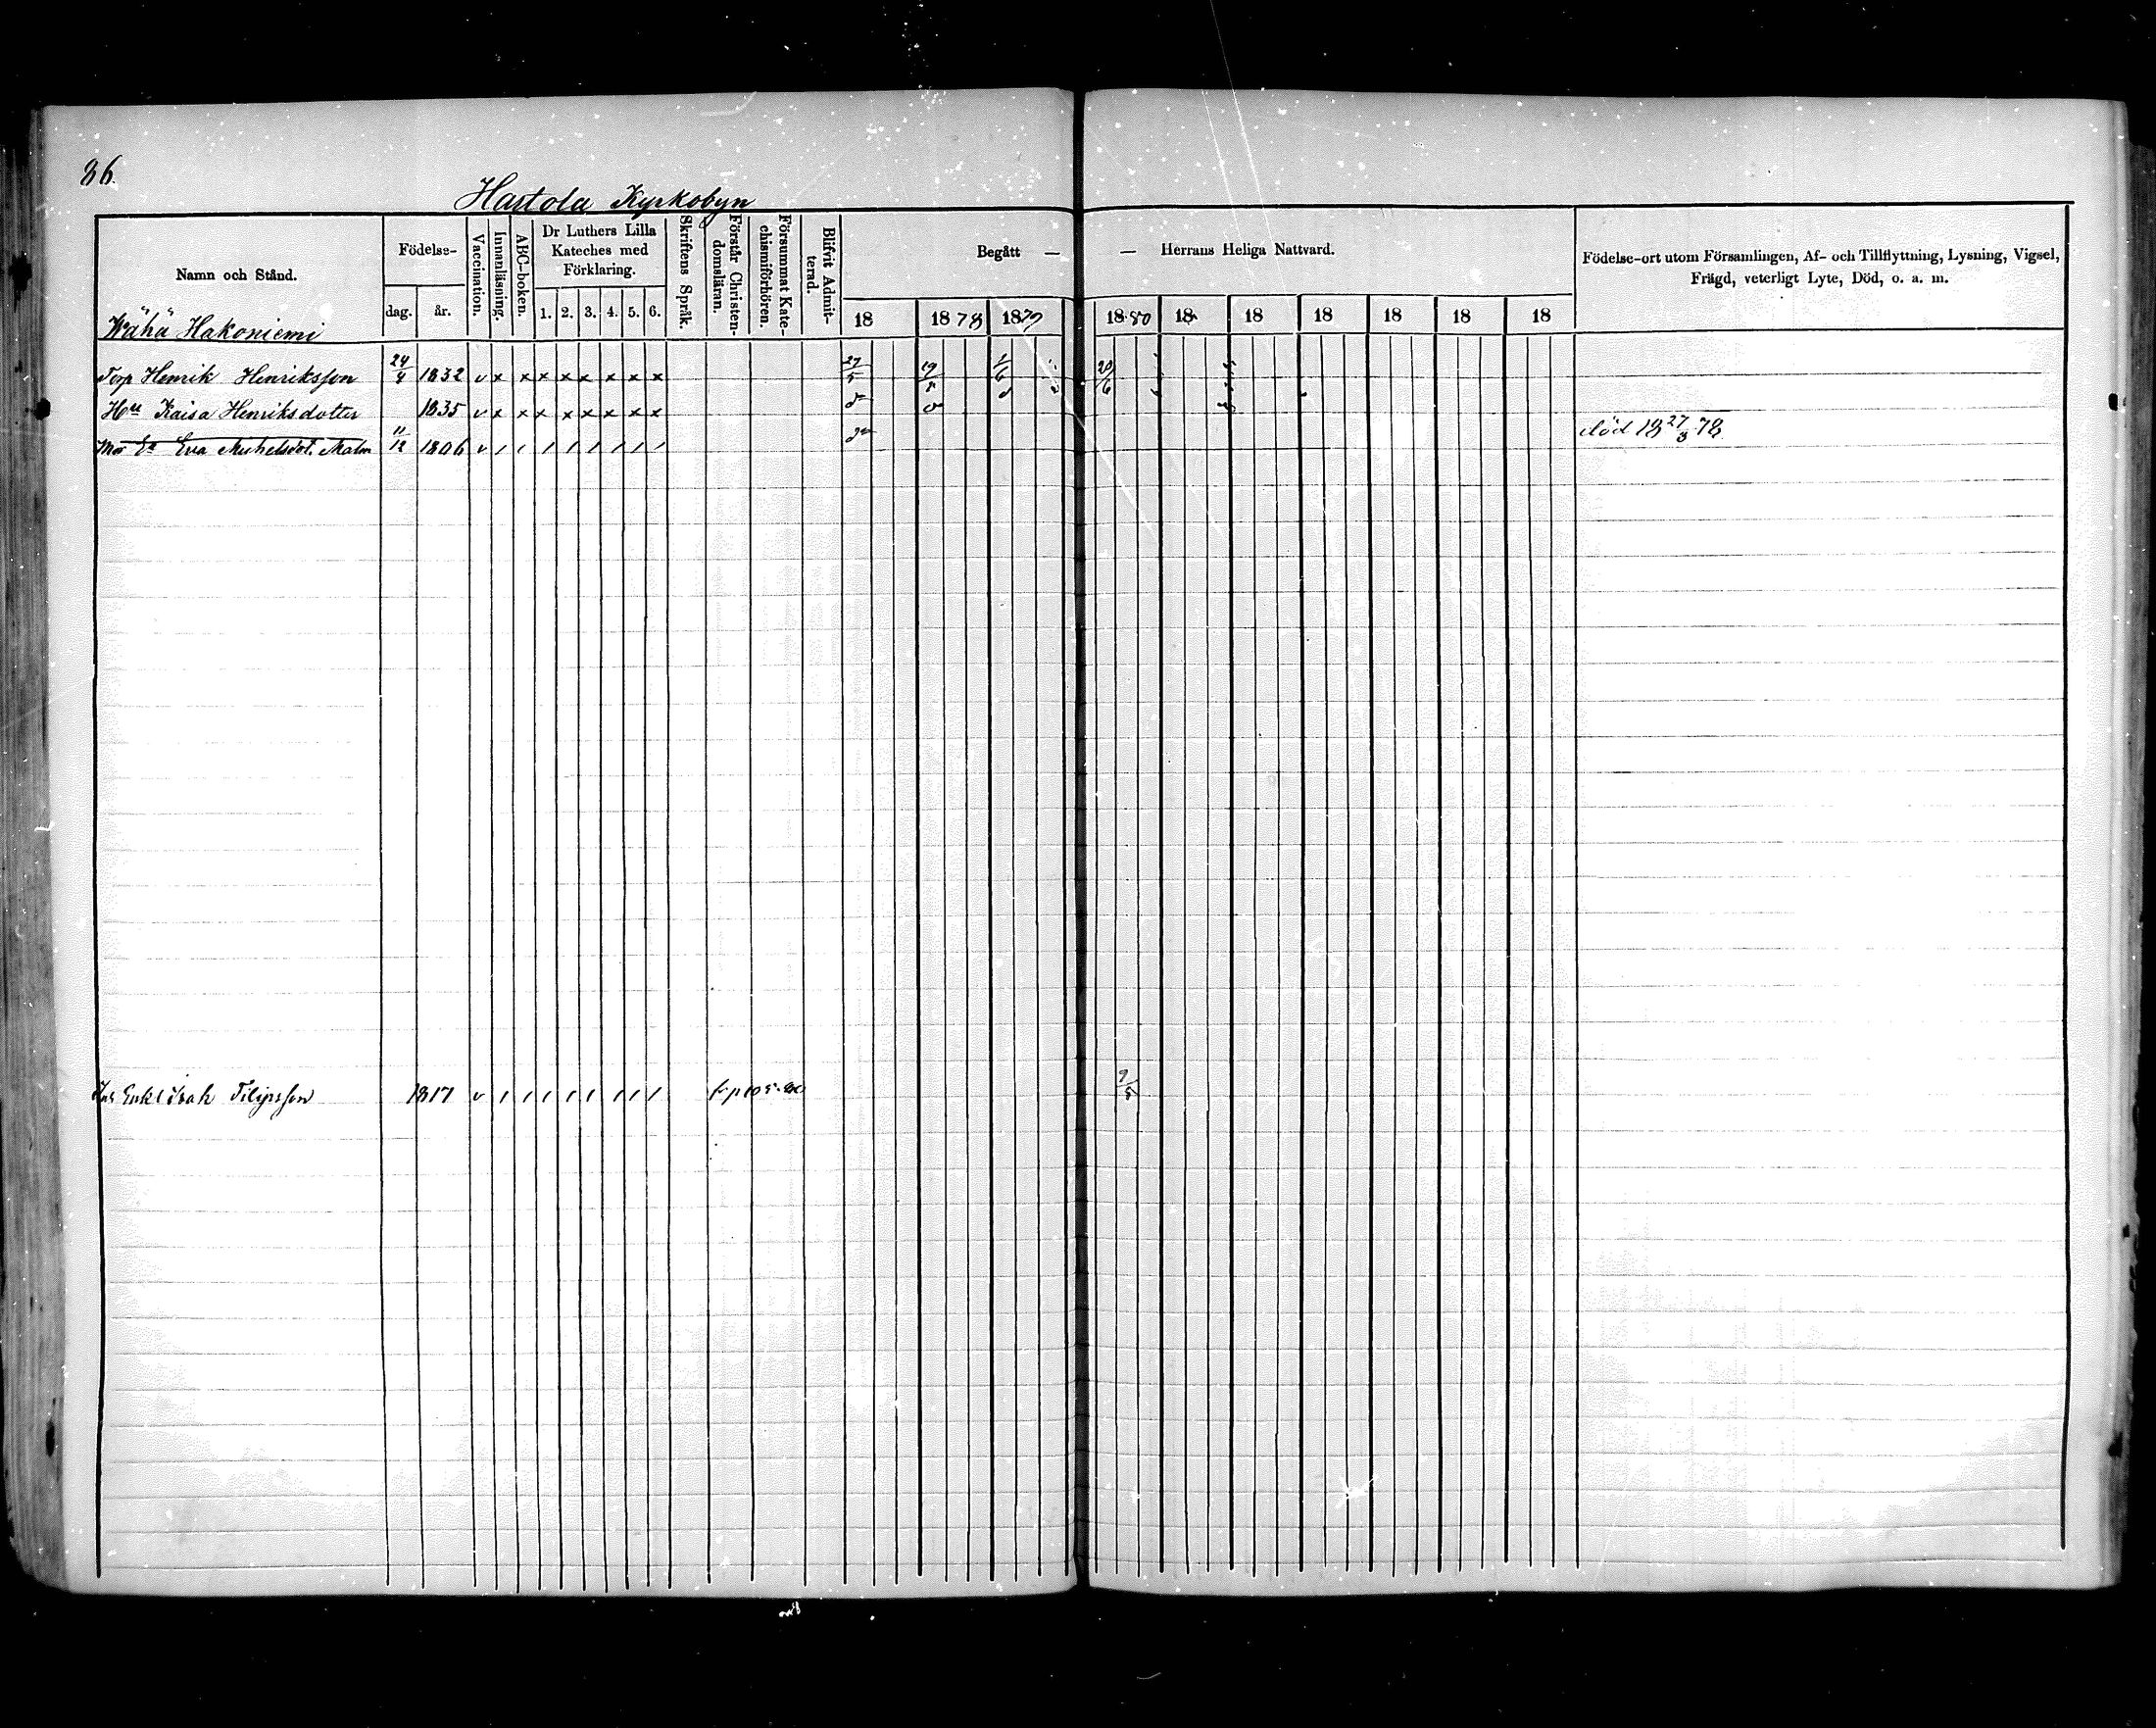 86.
Hartola Kyrkobyn
Namn och Stånd. Födelse- Vaccination. Innanläsning. ABC-boken. Dr Luthers Lilla Kateches med Förklaring. Skriftens Språk. Förstår Christendomsläran. Försummat Katechismiförhören. Blifvit Admitterad. Begått — — Herrans Heliga Nattvard. Födelse-ort utom Församlingen, Af- och Tillflyttning, Lysning, Vigsel, Frägd, veterligt Lyte, Död, o. a. m.
dag. år. 1. 2. 3. 4. 5. 6. 18 1878 1879 1880 18 18 18 18 18 18
Wähä Hakoniemi
Torp Henrik Henriksson 24/9 1832 v x x x x x x x x 27/5 19/5 1/6 20/6
Hu Kaisa Henriksdotter 1835 v x x x x x x x x
Mor Ea Eva Michelsdot. Malm 11/12 1806 v / / / / / / / / död 18 27/3 78.
Inh Enkl Isak Filipsson 1817 v / / / / / / / / 9/5